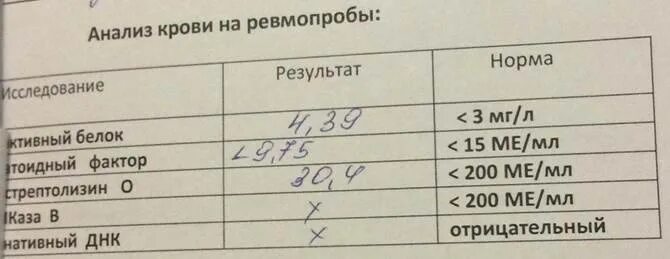 Анализ крови на ревмопробы:
Исследование Результат Норма
ктивный белок 4,39 < 3 мг/л
атоидный фактор <9,75 < 15 МЕ/мл
стрептолизин О 30,4 < 200 МЕ/мл
Каза В х < 200 МЕ/мл
нативный ДНК х отрицательный